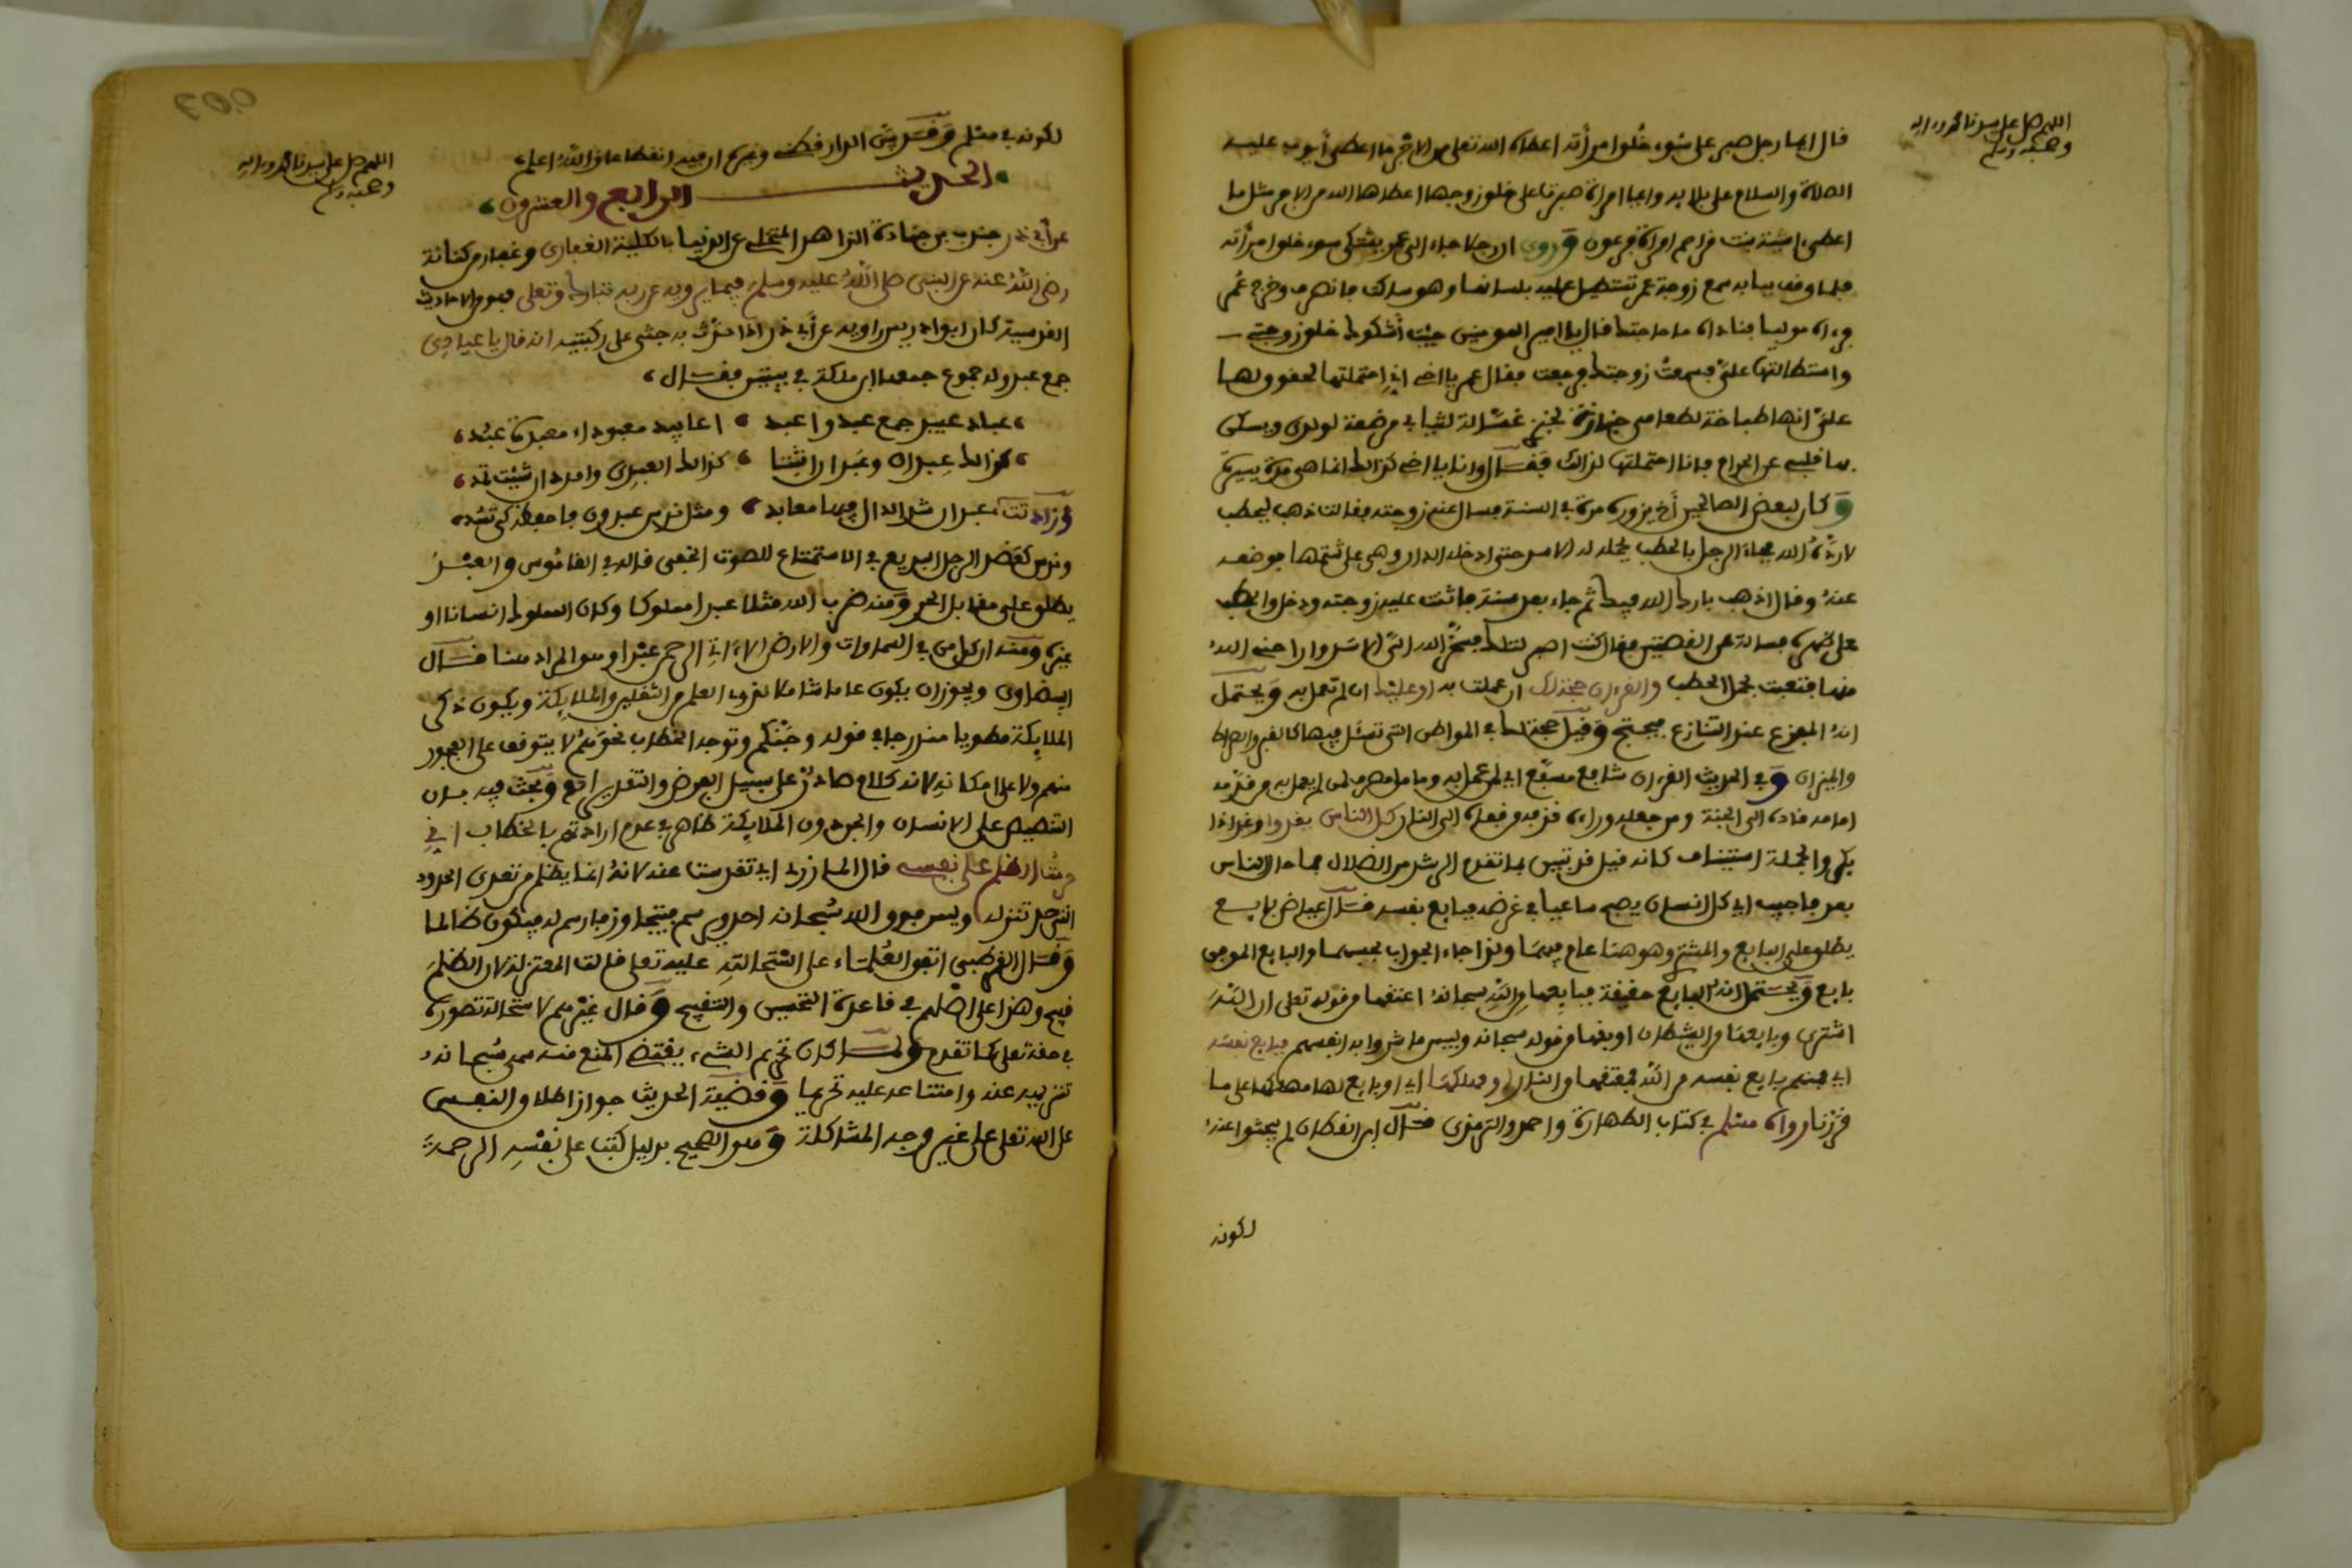 اللهم صل على سيدنا محمد وءاله
وصحبه وسلم
قال ايما رجل صبر على سوء خلق امرأته اعطاه الله تعلى من الاجر ما اعطى أيوب عليه
الصلاة والسلام على بلايه وايما امراة صبرت على خلق زوجها اعطاها الله من الاجر مثل ما
اعطى ءاسية بنت مزاحم امراة فرعون وروى ان رجلا جاء الى عمر يشتكى سوء خلق امرأته
فلما وقف ببابه سمع زوجة عمر تستطيل عليه بلسانها وهو ساكت فانصرف وخرج عمر
فرءاه موليا فناداه ما حاجتك فقال يا امير المومنين جيت أشكوك خلق زوجتي
واستطالتها علي فسمعت زوجتك فرجعت فقال عمر يا اخي اني احتملتها لحقوق لها
علي انها طباخة لطعامي خبازة لخبزي غسالة لثيابي مرضعة لولدى ويسكن
بها قلبي عن الحرام فانا احتملتها لذلك فقال وانا يا اخي كذالك انما هى مدة يسيرة
وكان لبعض الصالحين أخ يزوره مرة في السنة فسال عنه زوجته فقالت ذهب ليحطب
لا ردّه الله فجاء الرجل بالحطب يحمله له الاسد حتى ادخله الدار وهى على شتمها فوضعه
عنه وقال اذهب بارك الله فيك ثم جاء بعد سنة ماتت عليه زوجته ودخل والحطب
على ظهره فساله عن القصتين فقال كنت اصبر لتلك فسخر الله الىّ الاسد وارا حنى الله
منها فتعبت بحمل الحطب والقرءان حجة لك ان عملت به او عليك ان لم تعمل به ويحتمل
انه المفزع عند التنازع فيحتج وقيل حجة لك في المواطن التى تسئل فيها كالقبر والصراط
والميزان وفي الحديث القرءان شافع مشفع اي لمن عمل به وما حل مصدق لمن لم يعمل به من قدمه
امامه قاده الى الجنة ومن جعله وراءه قذف فى قفاه الى النار كل الناس يغدوا وغدا اذا
بكر والجملة استيناف كانه قيل قد تبين بما تقدم الرشد من الضلال فما حال الناس
بعد فاجيب اي كل انسان يصبح ساعيا في غرضه فبايع نفسه قال عياض بايع
يطلق على البايع والمشترى وهو هنا عام فيهما ولذا جاء الجواب بحسبهما والبايع الموجب
بايع ويحتمل انه البايع حقيقة فبايعها من الله سبحانه اعتقها من قوله تعلى ان الله
اشترى وبايعها من الشيطان اوبقها من قوله سبحانه وبيس ما شروا به انفسهم فبايع نفسه
اي فمنهم بايع نفسه من الله فمعتقها من النار او مهلكها اي او بايع لها مهلكها على ما
قررنا رواه مسلم في كتاب الطهارة واحمد والترمذى قال ابن القطان لم يبحثوا عنه
لكونه
اللهم صل على سيدنا محمد وءاله
وصحبه وسلم
لكونه في مسلم وقد بين الدارقطنى وغيره ان فيه انقطاعا والله اعلم
الحديث الرابع والعشرون
عن أبي ذر جندب بن جنادة الزاهد المتخلى عن الدنيا بالكلية الغفارى وغفار من كنانة
رضى الله عنه عن النبى صلى الله عليه وسلم فيما يرويه عن ربه تبارك وتعلى فهو من الاحاديث
القدسية كان ابو ادريس راويه عن أبي ذر اذا حدّث به جثى على ركبتيه انه قال يا عبادى
جمع عبد وله جموع جمعها ابن ملك في بيتين فقال
عباد عبيد جمع عبد واعبد اعابد معبوداء معبدة عبد
كذالك عبدان وعبدان اثبتا كذالك العبدى وامدد ان شيت تمد
وزادت عبدان شد الدال فيها معابد ومثل ندس عبدون فاحفظ كى تسد
وندس كعضد الرجل السريع في الاستمتاع للصوت الخفى قاله في القاموس والعبد
يطلق على مقابل الحر ومنه ضرب الله مثلا عبدا مملوكا وكان المملوك انسانا او
غيره ومنه ان كل من في السماوات والارض الا ءاتى الرحمن عبدا وهو المراد هنا قال
البيضاوى ويجوز ان يكون عاما شاملا لذوى العلم من الثقلين والملايكة ويكون ذكر
الملايكة مطويا مندرجا في قوله وجنكم وتوجه الخطاب نحوهم لا يتوقف على الفجور
منهم ولا على امكانه لانه كلام صادر على سبيل الفرض والتقدير انتهى وبحث فيه بان
التنصيص على الانسان والجن دون الملايكة ظاهر في عدم ارادتهم بالخطاب اني
حرمت الظلم على نفسى قال المازرى اي تقدست عنه لانه انما يظلم من تعدى الحدود
التى حل تنزله وليس فوق الله سبحانه احد يرسم فيتجاوز ما رسم له فيكون ظالما
وقال القرطبى اتفق العلماء على استحالته عليه تعلى قالت المعتزلة لان الظلم
قبيح وهذا على اصلهم في قاعدة التحسين والتقبيح وقال غيرهم لاستحالة تصوره
في حقه تعلى كما تقدم ولما كان تحريم الشيء يقتضى المنع منه سمى سبحانه
تنزيهه عنه وامتناعه عليه تحريما وقضية الحديث جواز اطلاق النفس
على الله تعلى على غير وجه المشاكلة وهو الصحيح بدليل كتب على نفسه الرحمة